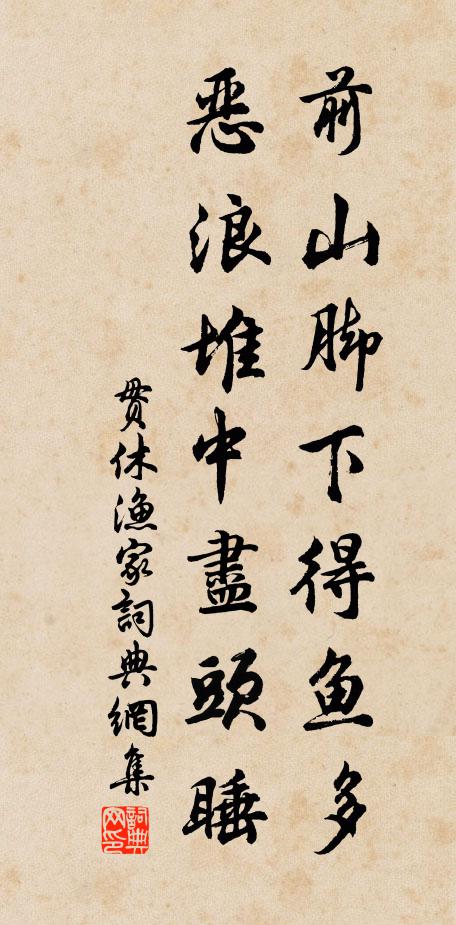 前山脚下得鱼多
恶浪堆中盡頭睡
贯休渔家詞典網集
詞典网印